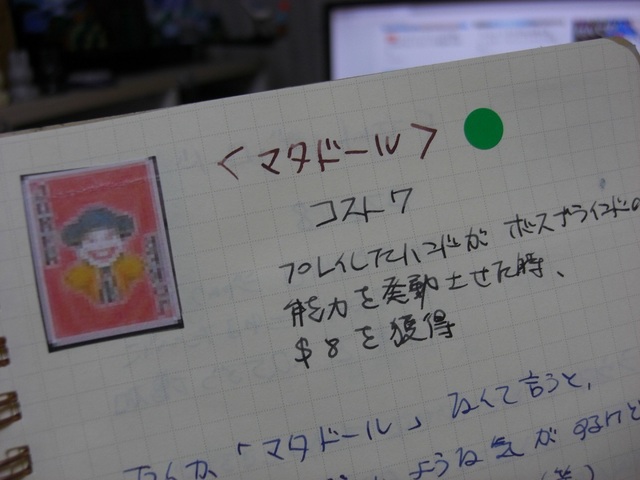 <マタドール>
コスト7
プレイしたハンドが ボスブラインドの
能力を発動させた時、
$8を獲得
JOKER
なんか「マタドール」なくて言うと、
ような気がするけど
(笑)